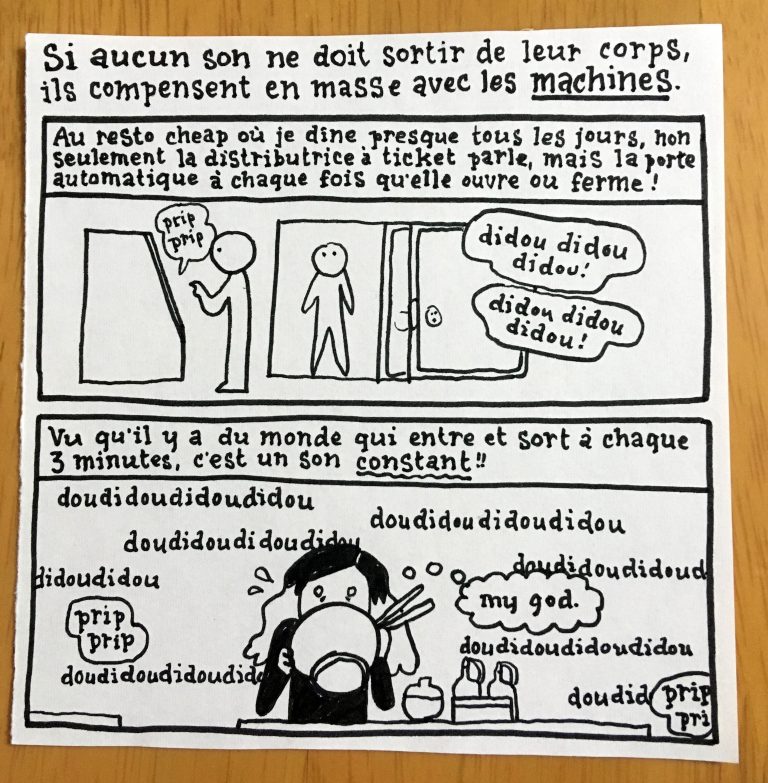 Si aucun son ne doit sortir de leur corps,
ils compensent en masse avec les machines.
Au resto cheap où je dîne presque tous les jours, non
seulement la distributrice à ticket parle, mais la porte
automatique à chaque fois qu'elle ouvre ou ferme!
prip
prip
didou didou
didou!
didou didou
didou!
Vu qu'il y a du monde qui entre et sort à chaque
3 minutes, c'est un son constant!!
doudidoudidoudidou
doudidoudidoudidou
doudidoudidoudidou
doudidoudidoud
didoudidou
my god.
prip
prip
doudidoudidoudidou
doudidoudidoudido
doudid
prip
pri